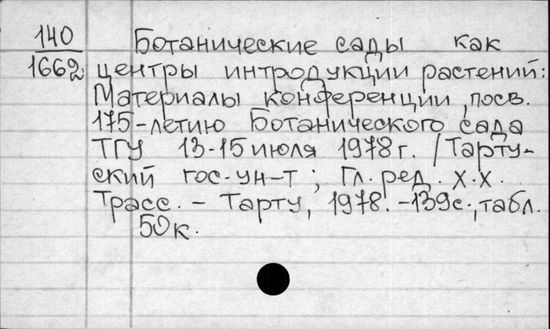 140 Ботанические сады как
1662 центры интродукции растений:
Материалы конференции, посв.
175-летию Ботанического сада
ТГУ 13-15 июля 1978 г. / Тарту-
ский гос. ун-т; Гл. ред. Х.Х.
Трасс. - Тарту, 1978. - 139с., табл.
50к.